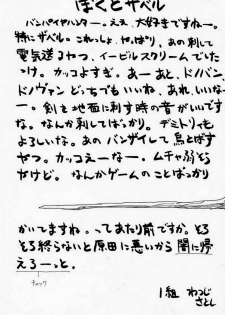 ぼくとザベル
バンパイヤハンター。ええ、大好きですねー。
特にザベル。これっしょ、やっぱり、あの刺して
電気送るやつ、イービルスクリームでした
っけ。カッコよすぎ。あーあと、ドノバン、
ドノヴァン どっちでもいいね、あれ、いいな
ー。剣を地面に刺す時の音がいいです
な。なんか刺してばっかり。デミトリィも
よろしいな。あのバンザイして鳥とばす
やつ。カッコえーなー。ムチャ弱そう
だけど。なんかゲームのことばっかり
かいてますね。ってあたり前ですか。そろ
そろ終らないと原田に悪いから闇に帰
えろーっと。
チェック
1組 わつじ
さとし